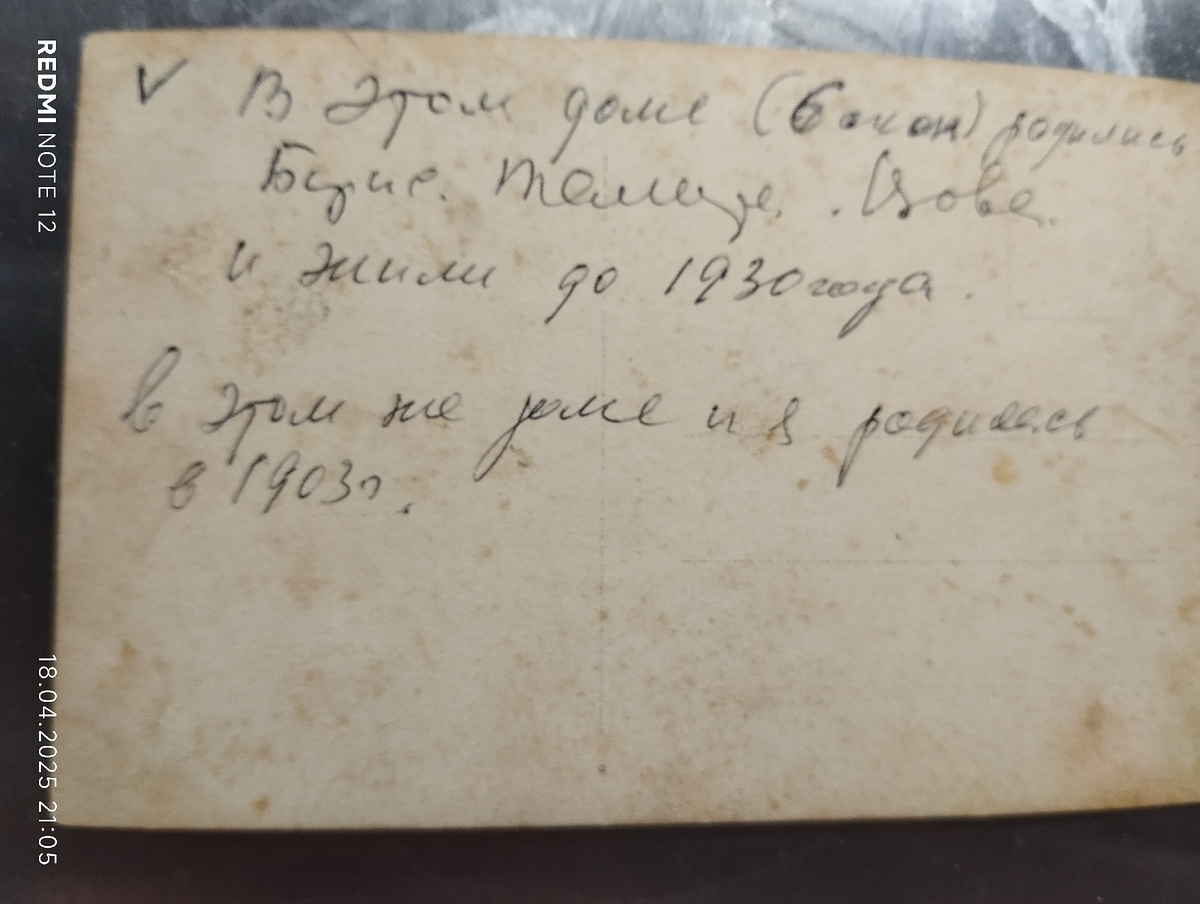 ✓ В этом доме (6 окон) родились
Борис. Тамара. Вова.
и жили до 1930 года.
В этом же доме и я родилась
в 1903 г.
REDMI NOTE 12
18.04.2025 21:05